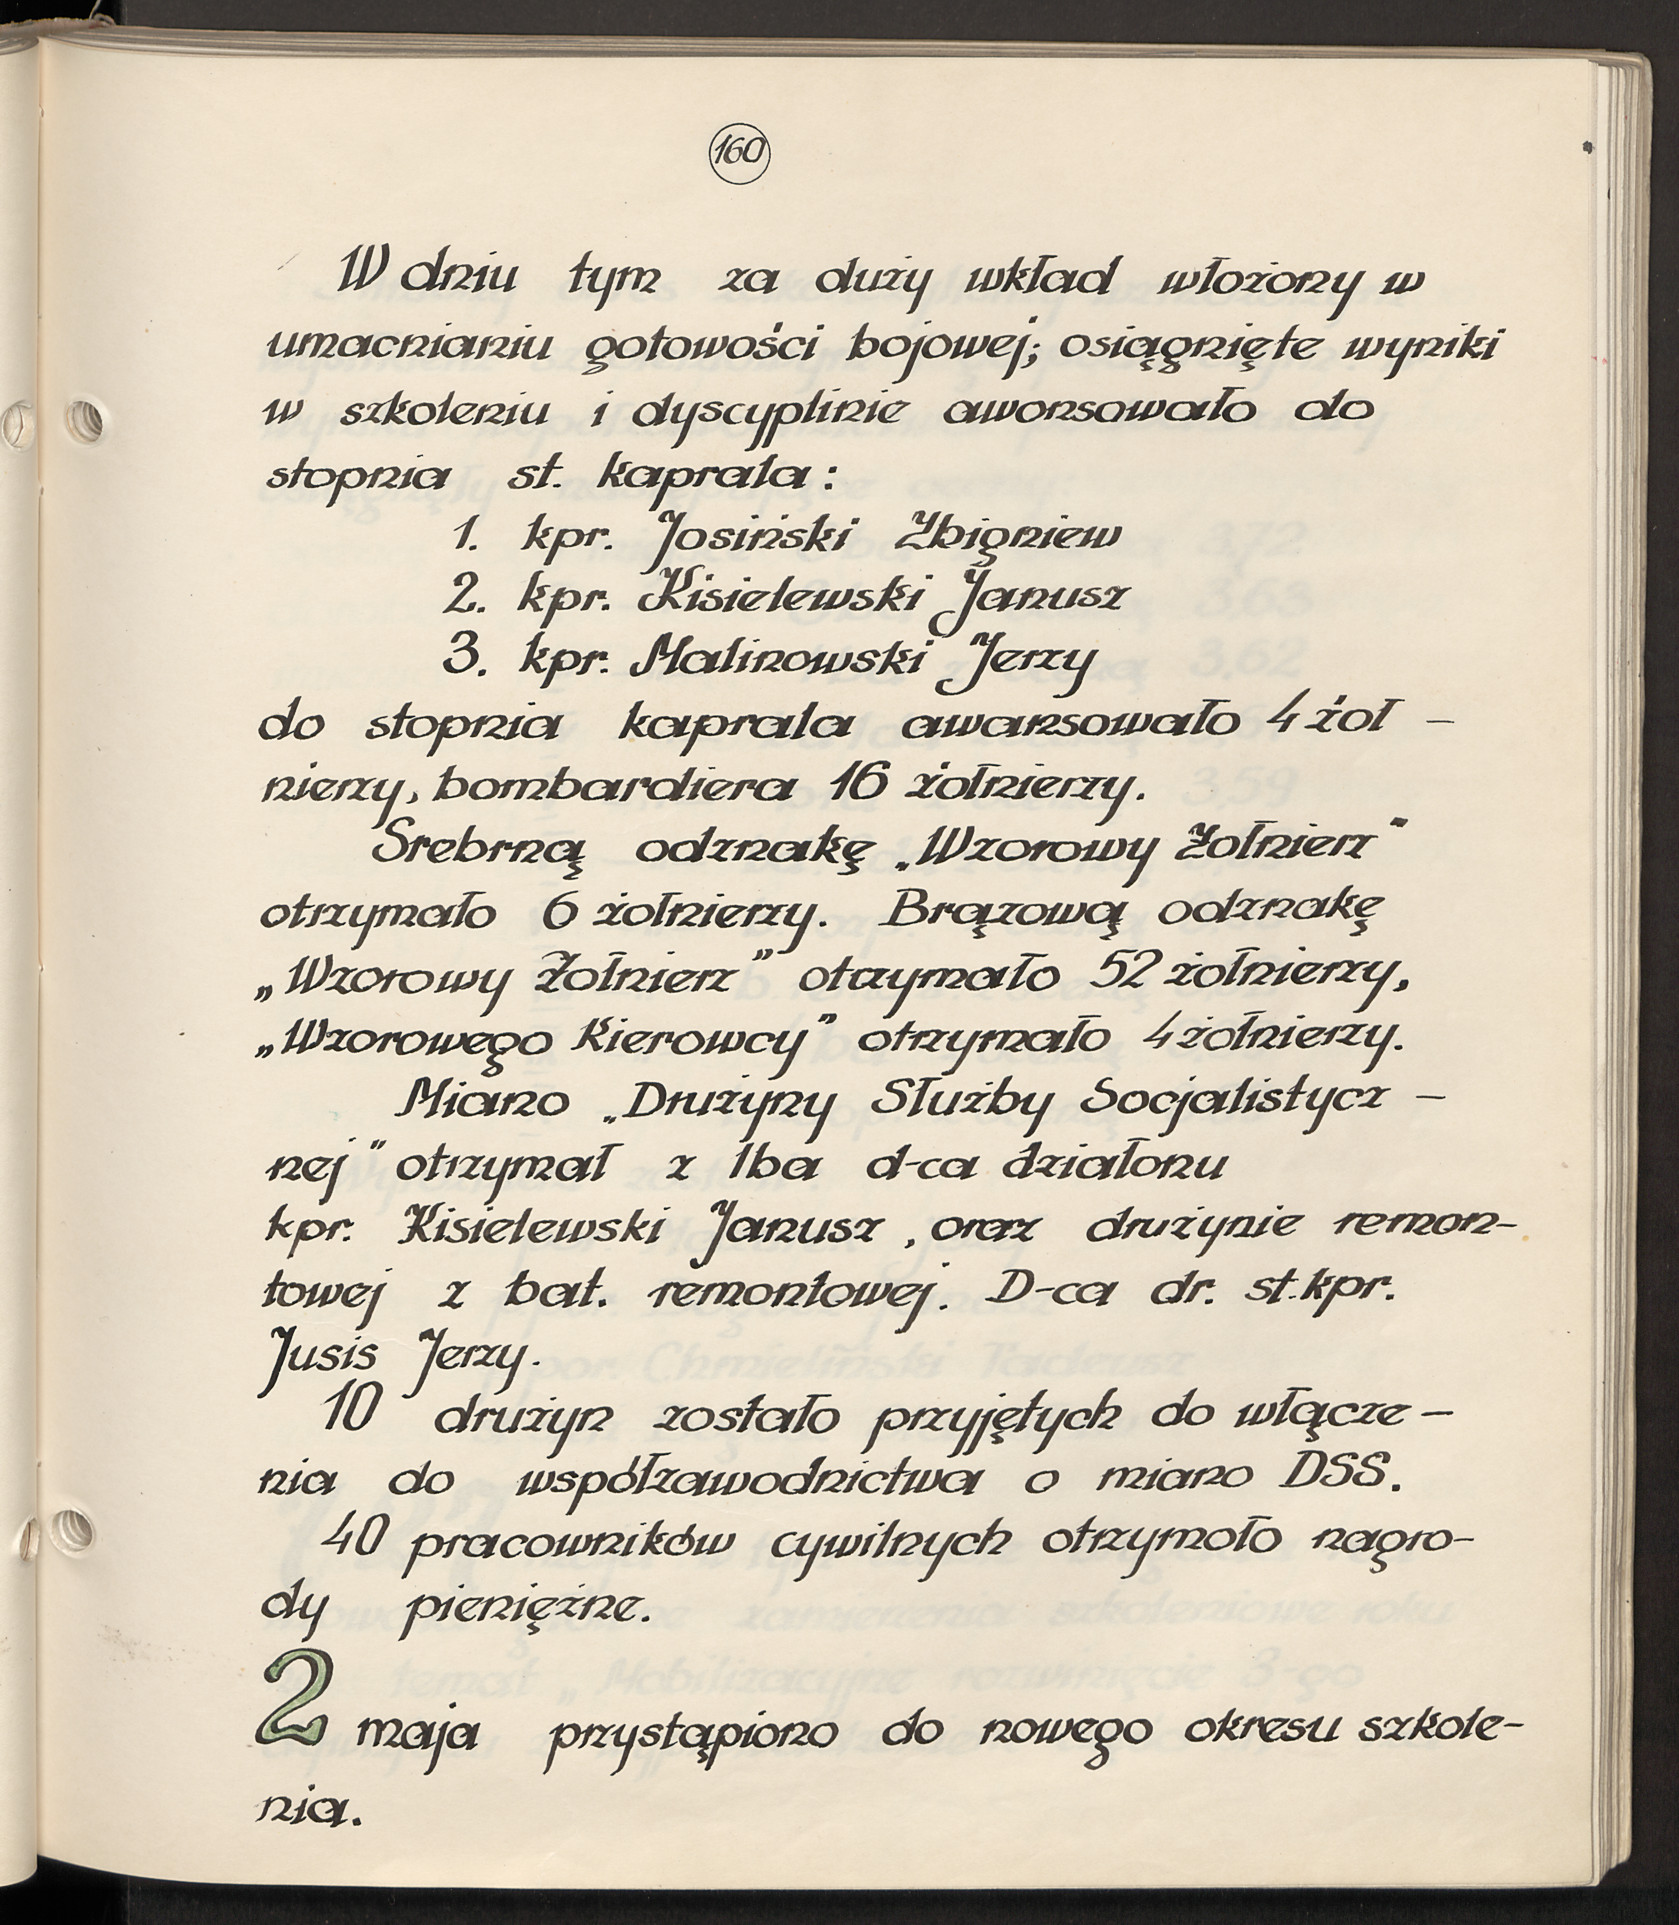 160
W dniu tym za duży wkład włożony w
umacnianiu gotowości bojowej; osiągnięte wyniki
w szkoleniu i dyscyplinie awonsowało do
stopnia st. kaprala:
1. kpr. Josiński Zbigniew
2. kpr. Kisielewski Janusz
3. kpr. Malinowski Jerzy
do stopnia kaprala awansowało 4 żoł –
nierzy, bombardiera 16 żołnierzy.
Srebrną odznakę „Wzorowy Żołnierz"
otrzymało 6 żołnierzy. Brązową odznakę
„Wzorowy Żołnierz" otrzymało 52 żołnierzy,
„Wzorowego Kierowcy" otrzymało 4 żołnierzy.
Miano „Drużyny Służby Socjalistycz –
nej" otrzymał z 1ba d-ca działonu
kpr. Kisielewski Janusz, oraz drużynie remon-
towej z bat. remontowej. D-ca dr. st. kpr.
Jusis Jerzy.
10 drużyn zostało przyjętych do włącze –
nia do współzawodnictwa o miano DSS.
40 pracowników cywilnych otrzymoło nagro-
dy pieniężne.
2 maja przystąpiono do nowego okresu szkole-
nia.